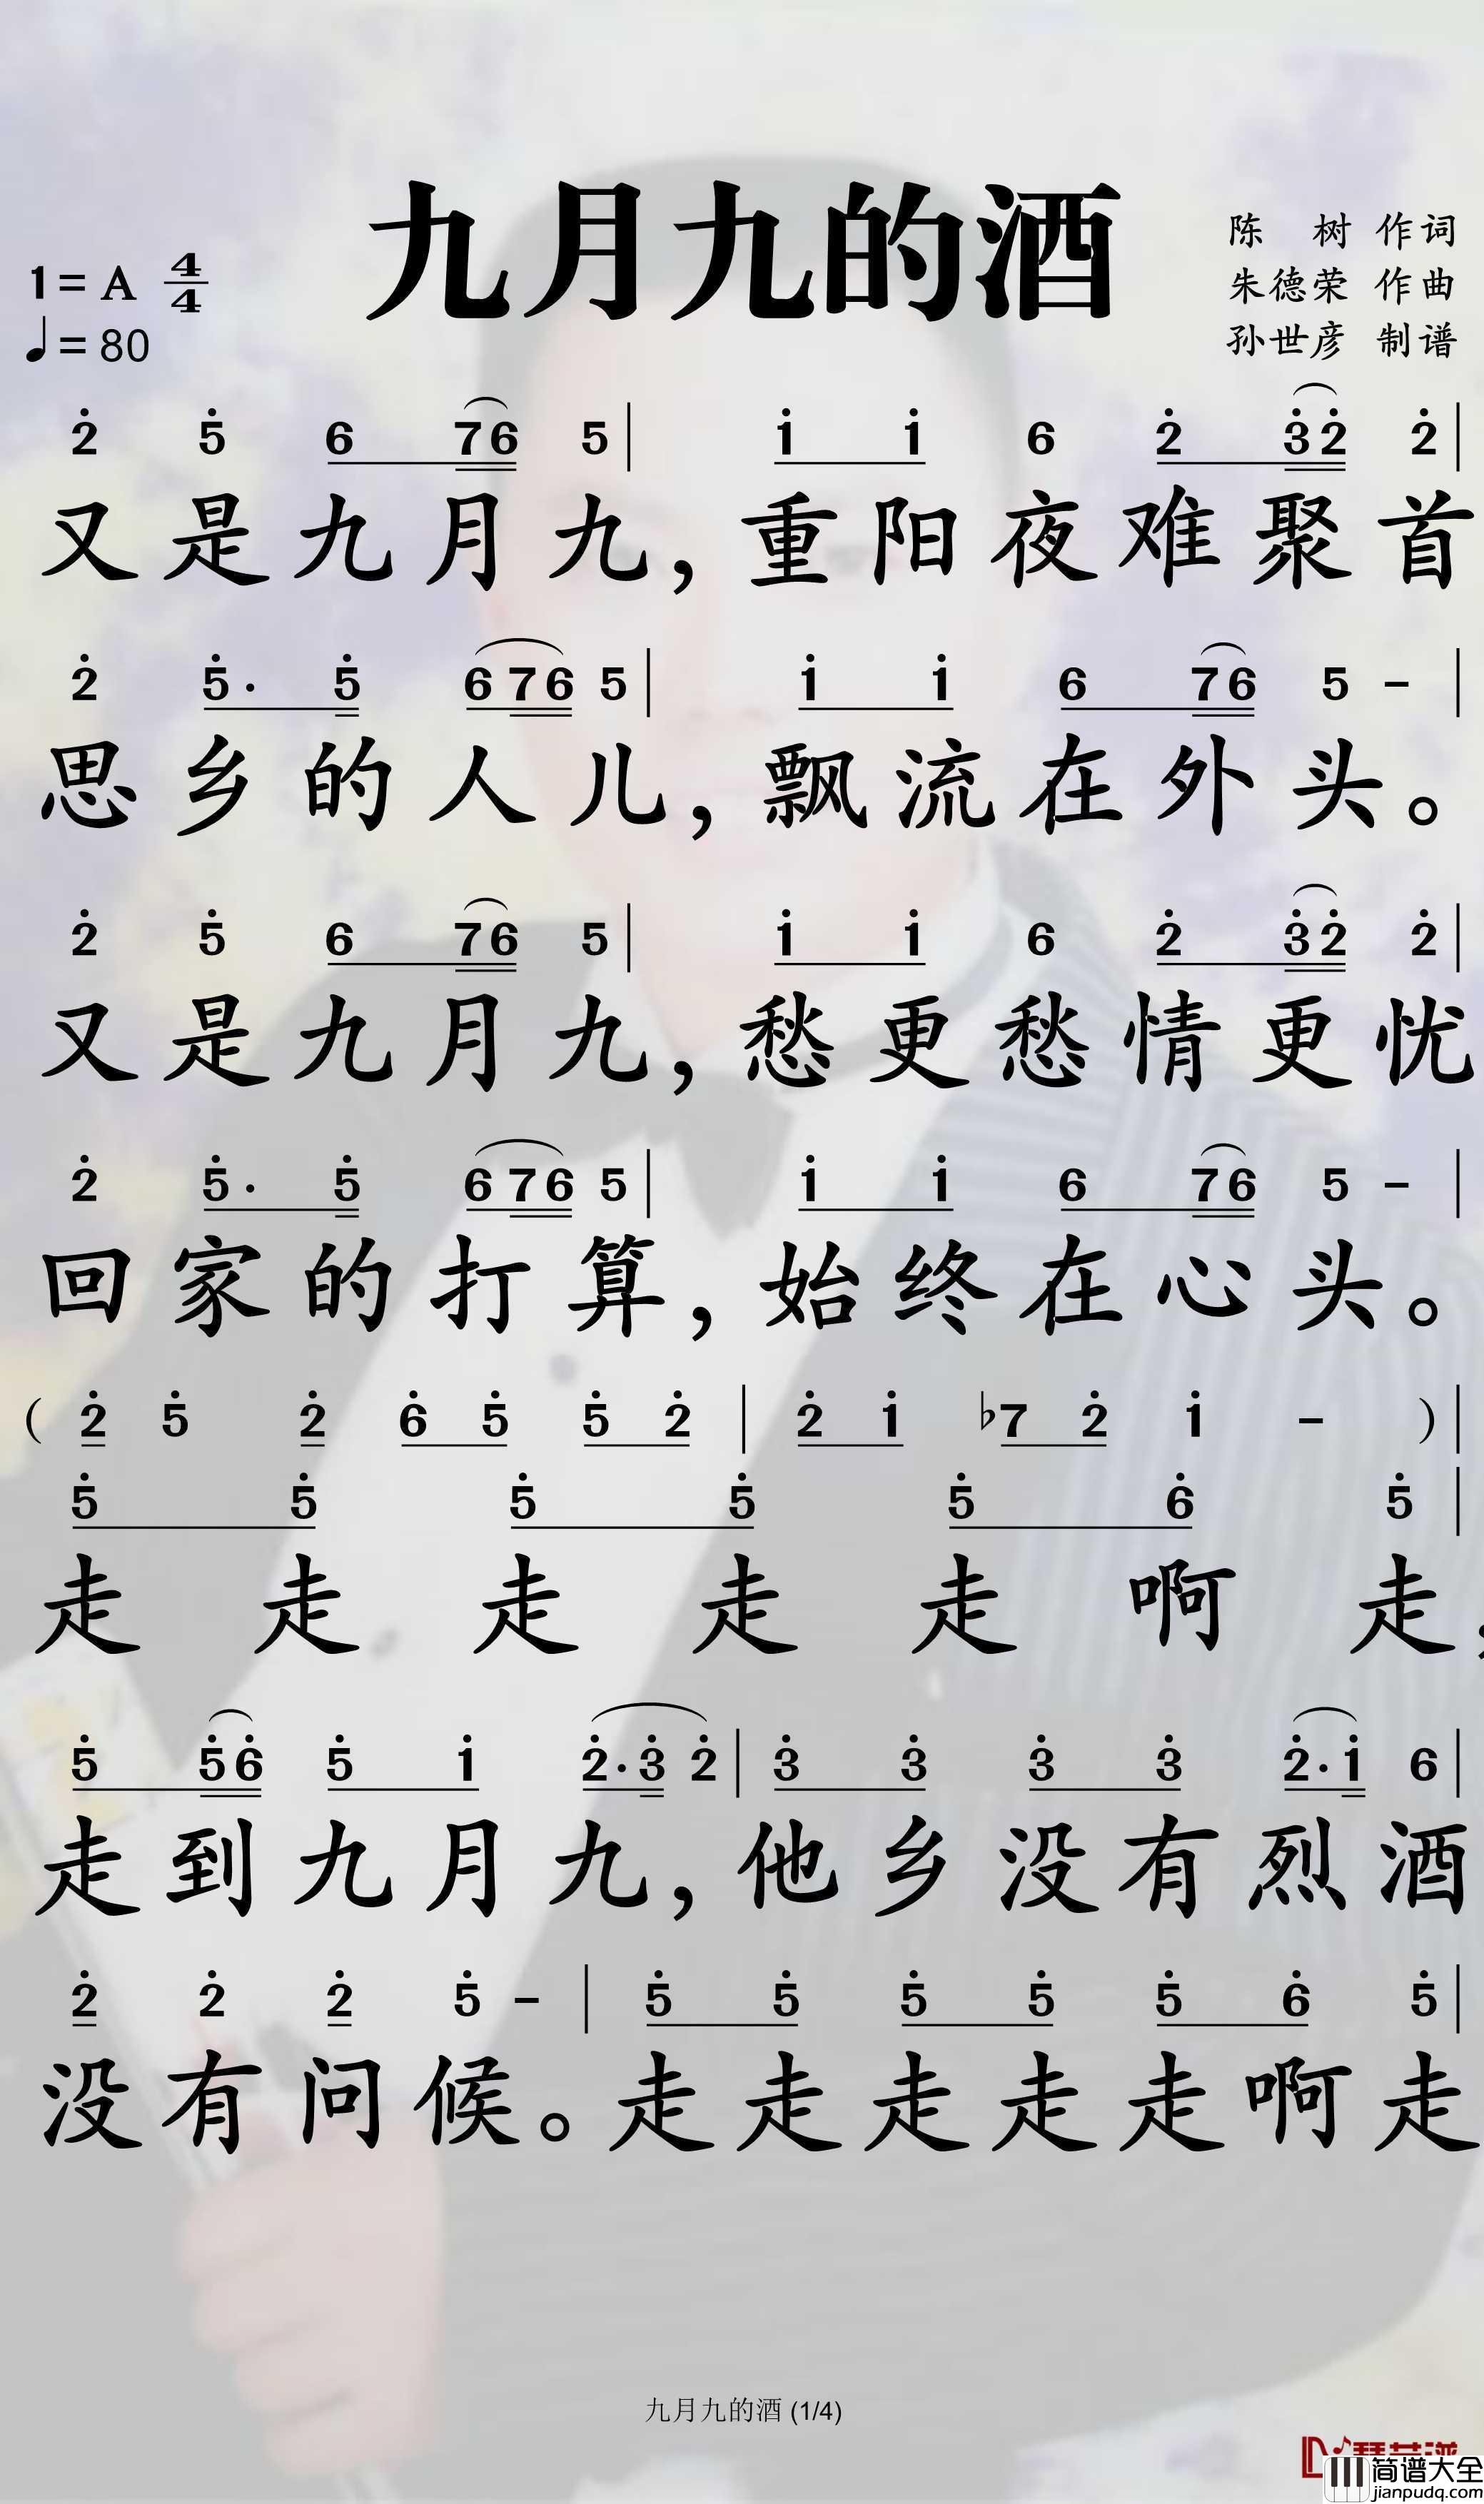 九月九的酒
陈 树 作词
朱德荣 作曲
孙世彦 制谱
1=A 4/4
♩=80
2̇ 5̇ 6 76 5 | 1̇ 1̇ 6 2̇ 3̇2̇ 2̇ |
又是九月九，重阳夜难聚首
2̇ 5̇· 5̇ 676 5 | 1̇ 1̇ 6 76 5 – |
思乡的人儿，飘流在外头。
2̇ 5̇ 6 76 5 | 1̇ 1̇ 6 2̇ 3̇2̇ 2̇ |
又是九月九，愁更愁情更忧
2̇ 5̇· 5̇ 676 5 | 1̇ 1̇ 6 76 5 – |
回家的打算，始终在心头。
( 2̇ 5̇ 2̇ 6̇ 5̇ 5̇ 2̇ | 2̇ 1̇ ♭7 2̇ 1̇ – ) |
5̇ 5̇ 5̇ 5̇ 5̇ 6̇ 5̇ |
走走走走走啊走，
5̇ 5̇6̇ 5̇ 1̇ 2̇·3̇ 2̇ | 3̇ 3̇ 3̇ 3̇ 2̇·1̇ 6 |
走到九月九，他乡没有烈酒
2̇ 2̇ 2̇ 5̇ – | 5̇ 5̇ 5̇ 5̇ 5̇ 6̇ 5̇ |
没有问候。走走走走走啊走
九月九的酒 (1/4)
简谱大全
jianpudq.com